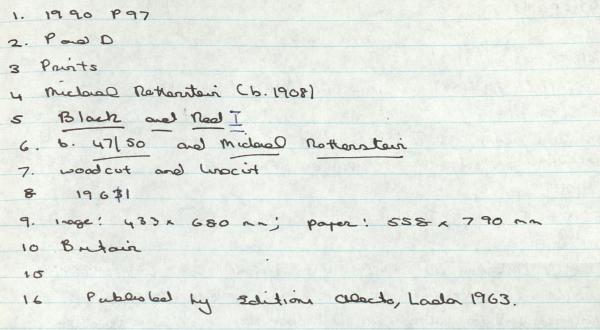 1. 1990 P97
2. P and D
3 Prints
4 Michael Rothenstein (b. 1908)
5 Black and Red I
6. b. 47/50 and Michael Rothenstein
7. woodcut and linocut
8 1961
9. image: 433 x 680 mm; paper: 558 x 790 mm
10 Britain
15
16 Published by Editions Alecto, London 1963.